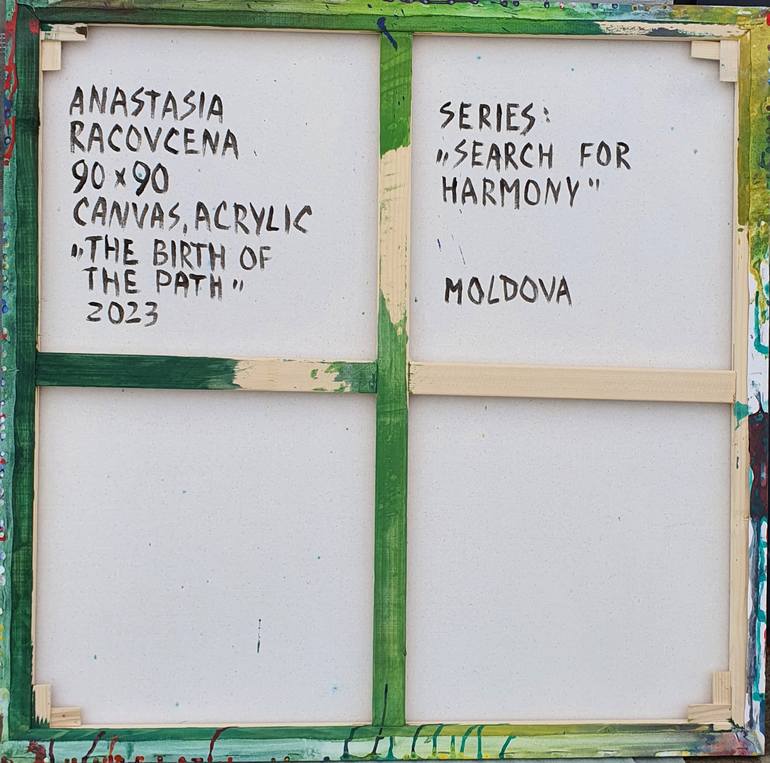 ANASTASIA
RACOVCENA
90 x 90
CANVAS, ACRYLIC
„THE BIRTH OF
THE PATH"
2023
SERIES:
„SEARCH FOR
HARMONY"
MOLDOVA